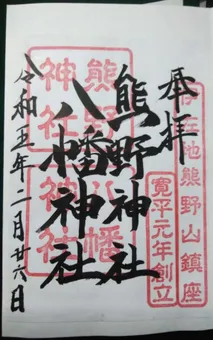 奉拝
池熊野山鎮座
寛平元年創立
熊野神社
八幡神社
熊野八幡
神社神社
令和五年二月廿六日